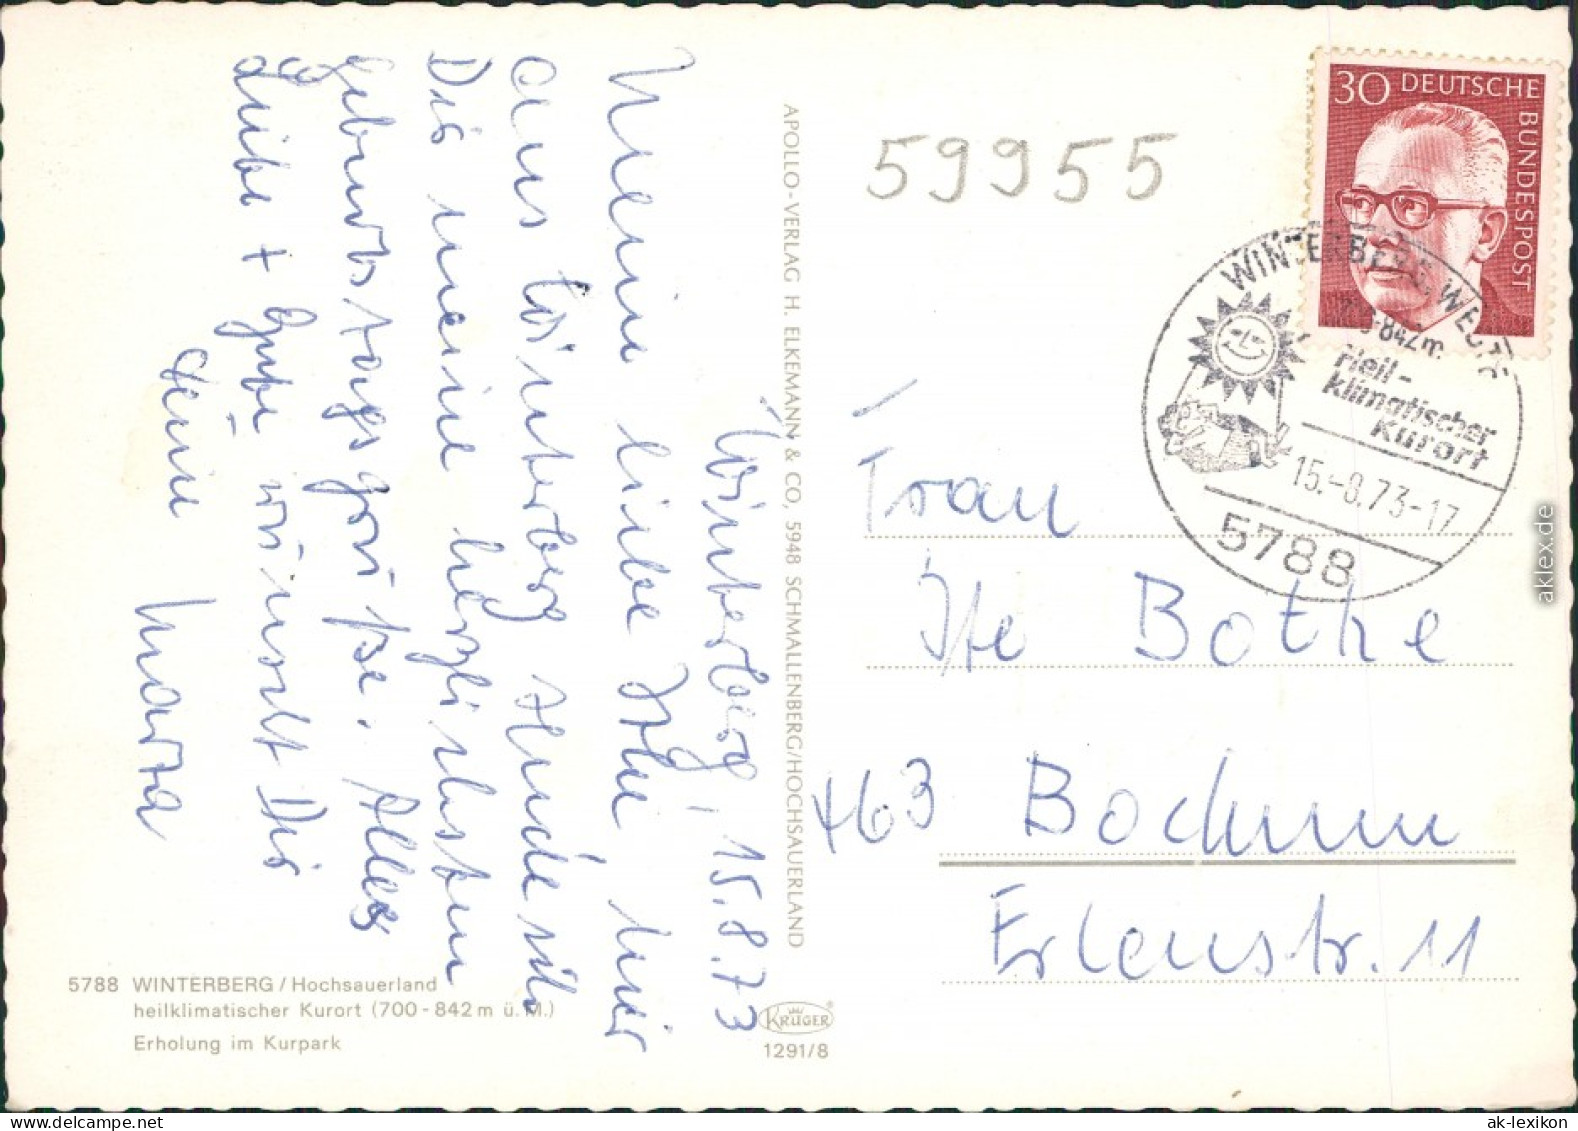 Winterberg, 15.8.73
Meine liebe Ite, hier
aus Winterberg sende ich
Dir meine herzlichsten
Geburtstagsgrüße. Alles
Liebe + Gute wünscht Dir
Deine
Marta
APOLLO-VERLAG H. ELKEMANN & CO, 5948 SCHMALLENBERG/HOCHSAUERLAND
5788 WINTERBERG / Hochsauerland
heilklimatischer Kurort (700 - 842 m ü. M.)
Erholung im Kurpark
KRÜGER
1291/8
59955
30 DEUTSCHE BUNDESPOST
WINTERBERG, WESTF
-842 m.
Heil-
klimatischer
Kurort
15.-8.73-17
5788
Frau
Ite Bothe
463 Bochum
Erlenstr. 11
aklex.de
ak-lexikon